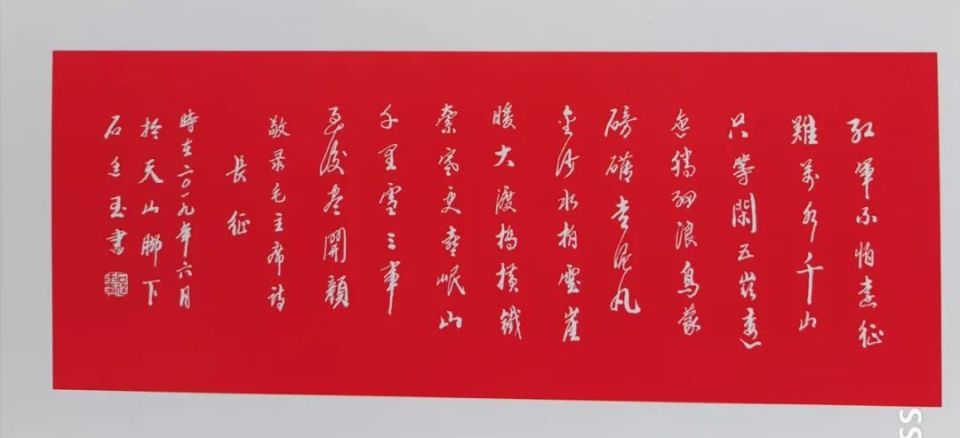 紅軍不怕遠征
難萬水千山
只等閑五嶺逶
迤騰細浪烏蒙
磅礴走泥丸
金沙水拍雲崖
暖大渡橋橫鐵
索寒更喜岷山
千里雪三軍
過後盡開顏
敬录毛主席詩
長征
時在二〇一九年六月
於天山腳下
石玉書